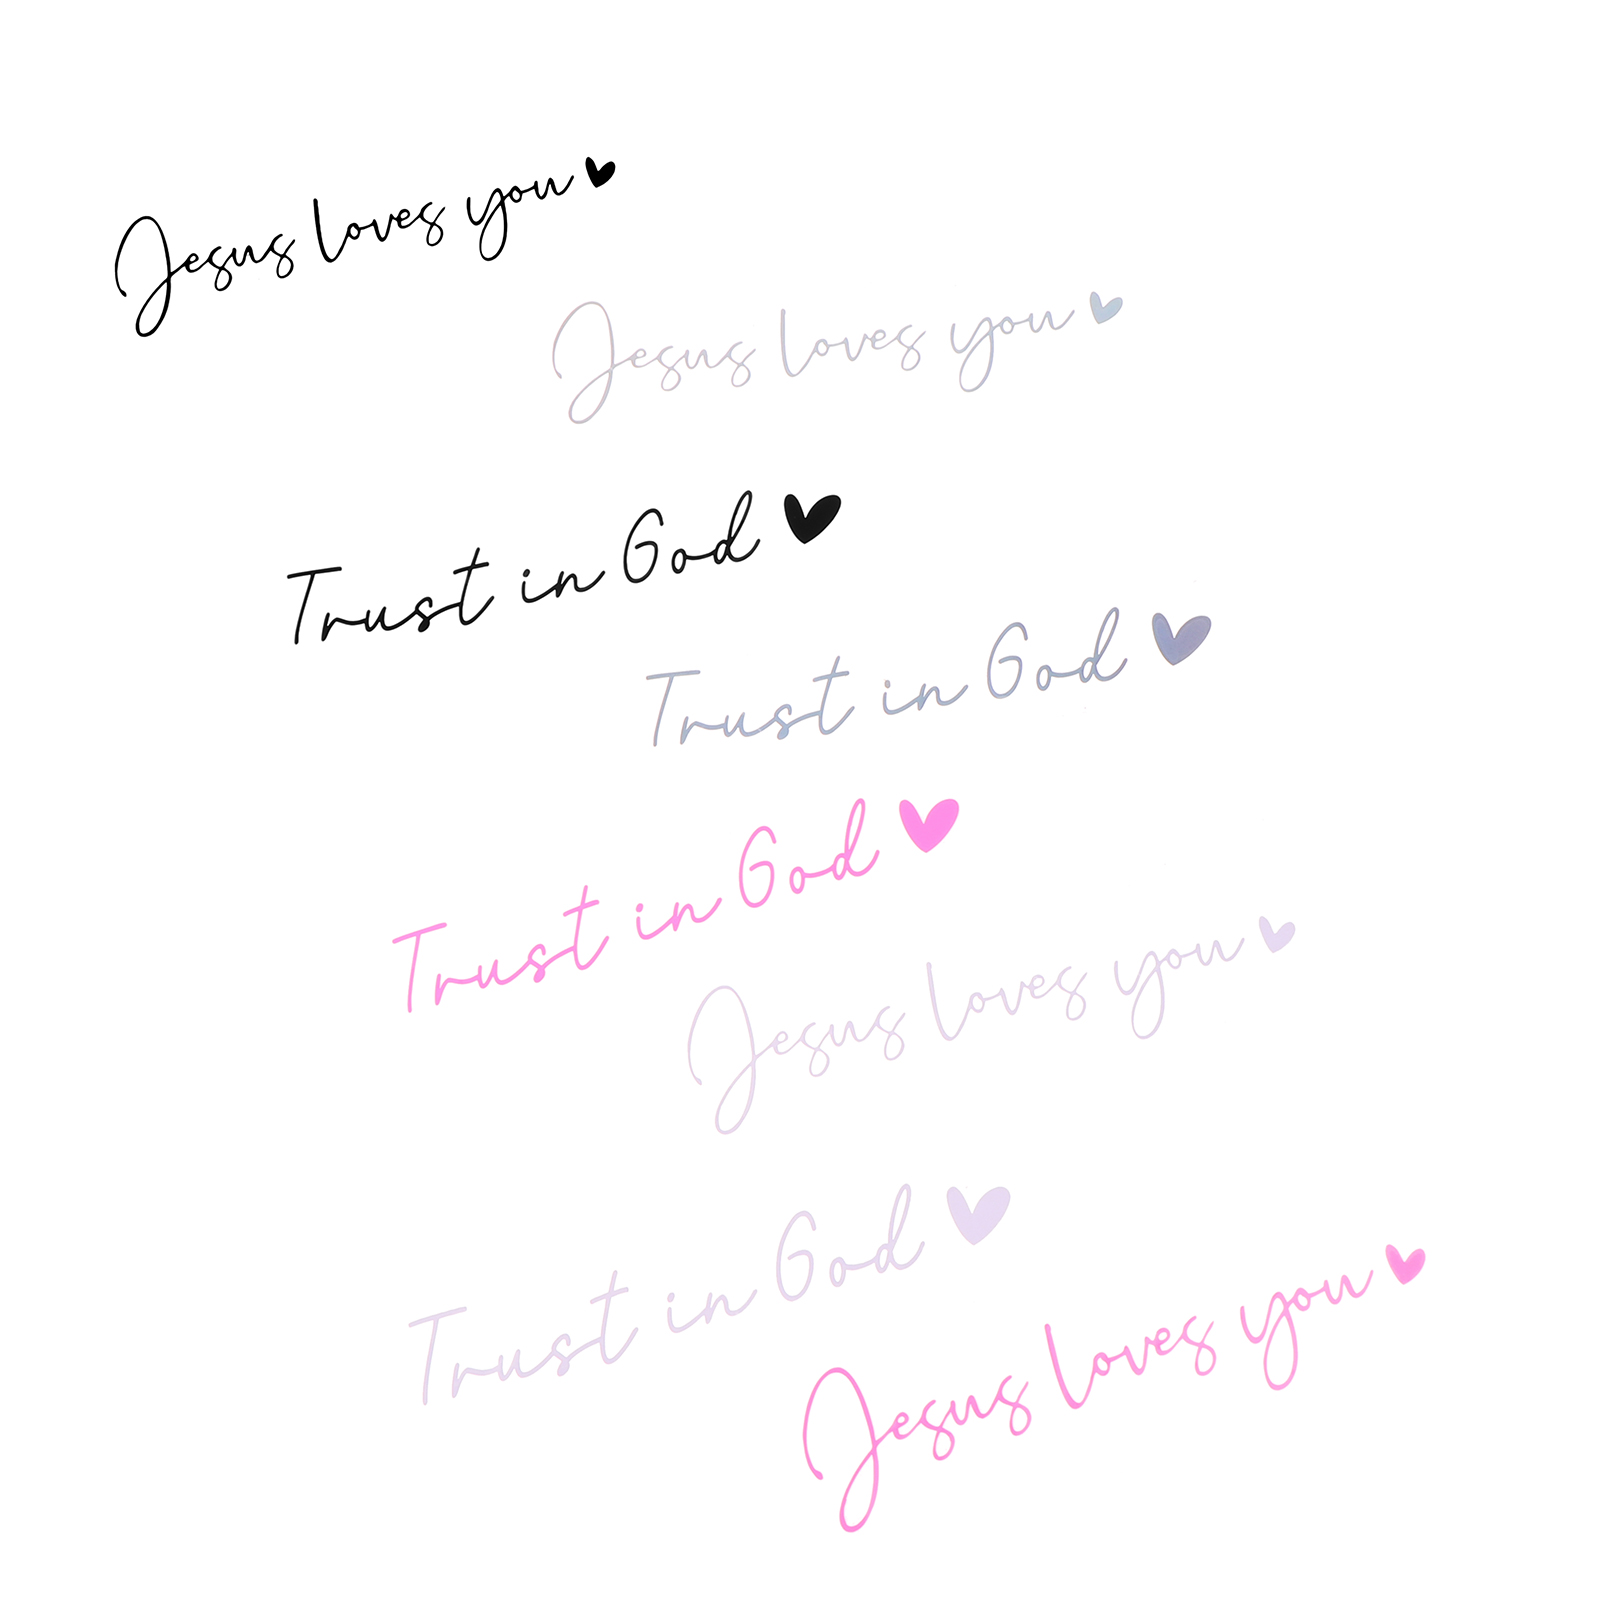 Jesus loves you
Jesus loves you
Trust in God
Trust in God
Trust in God
Jesus loves you
Trust in God
Jesus loves you